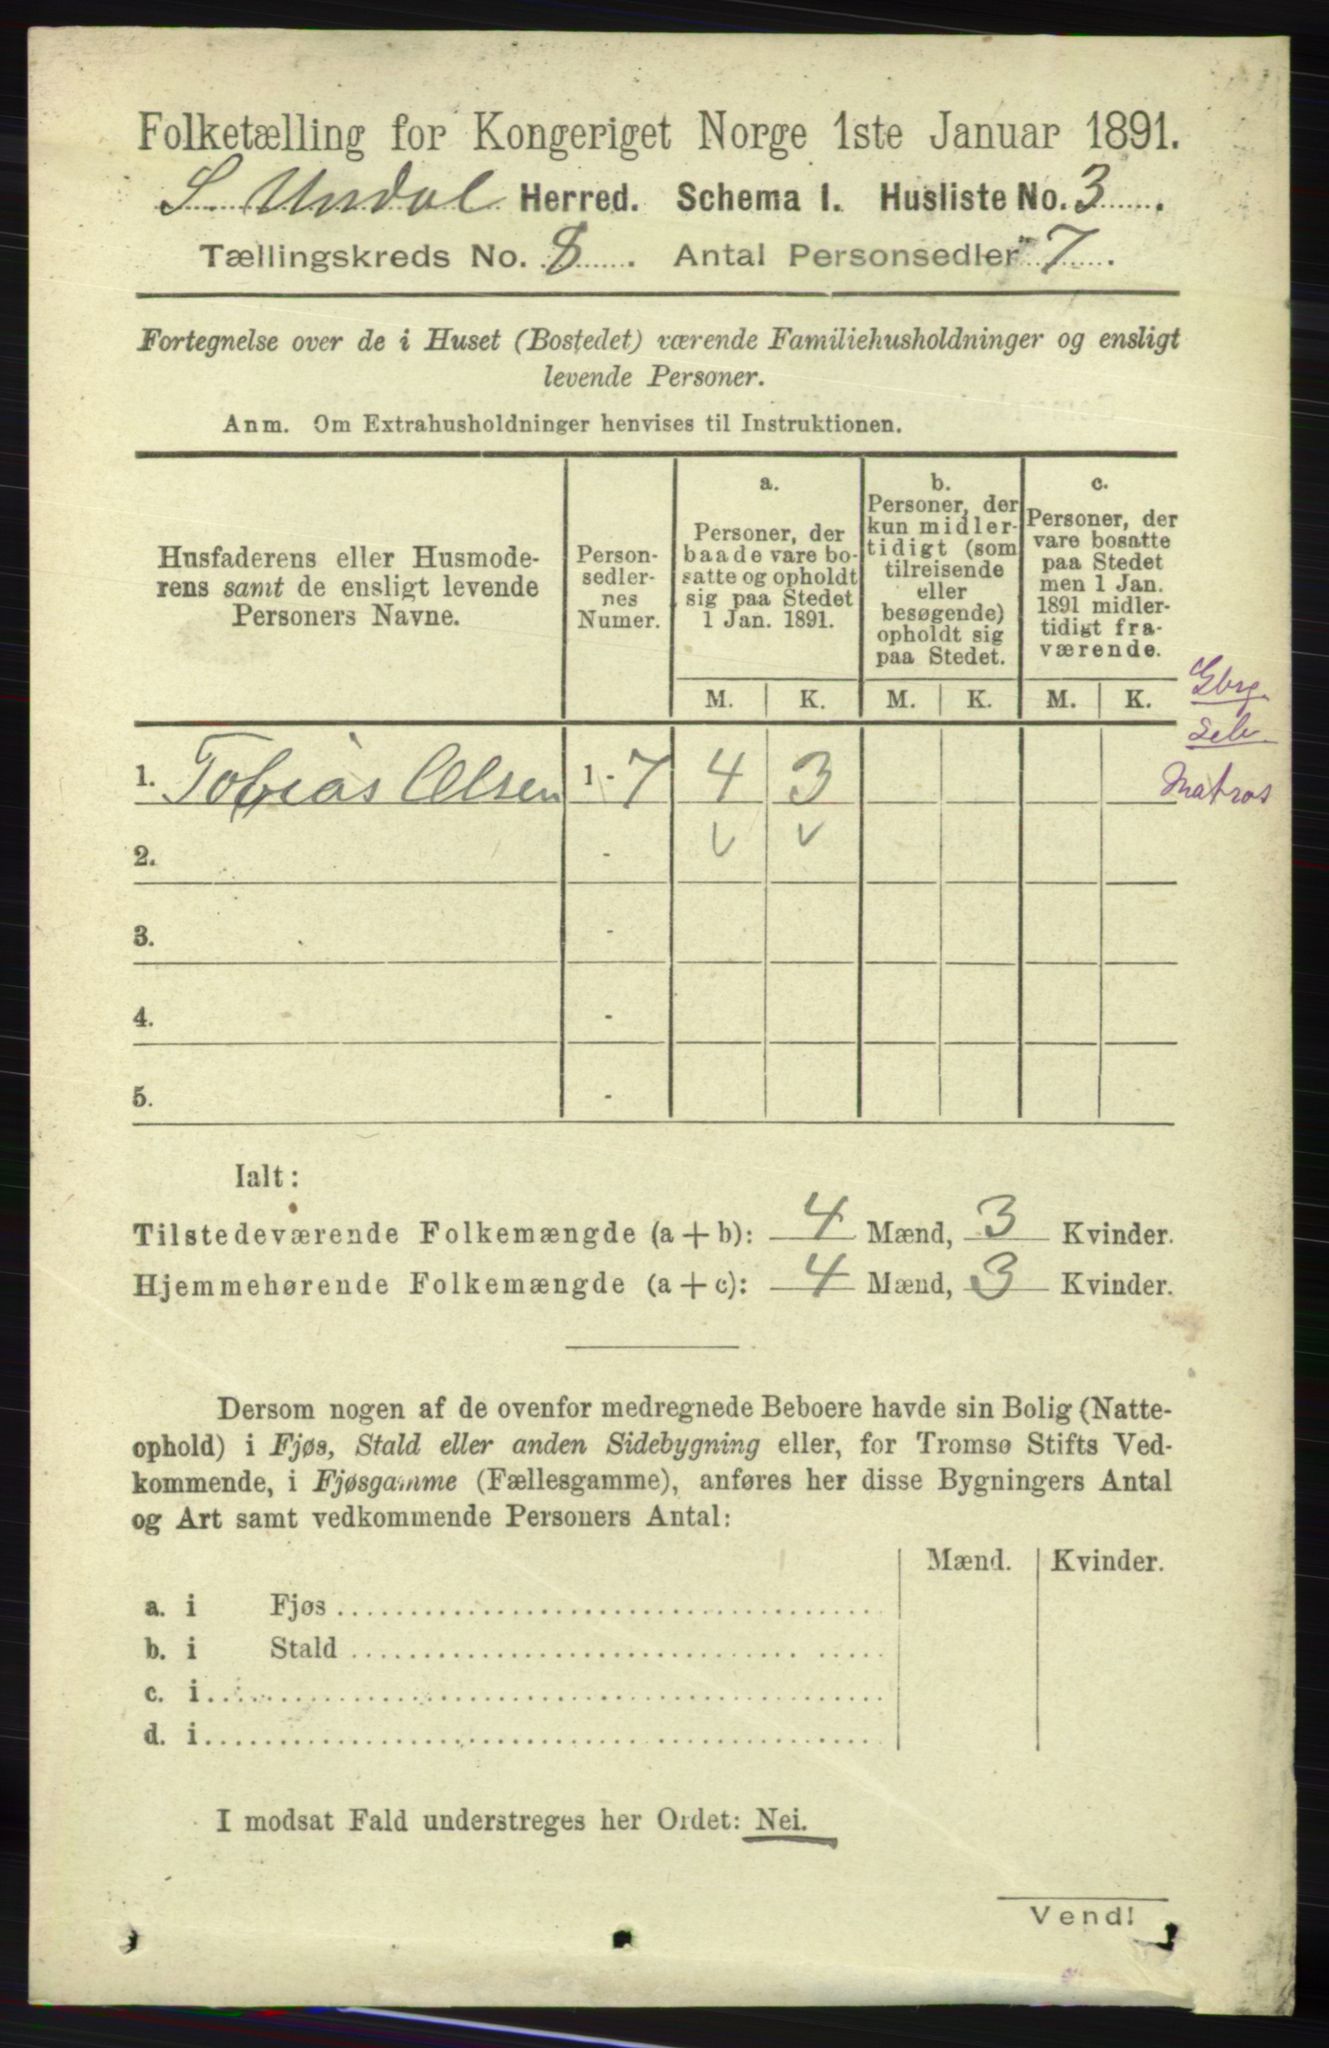 Folketælling for Kongeriget Norge 1ste Januar 1891.
S. Undal Herred. Schema I. Husliste No. 3.
Tællingskreds No. 8. Antal Personsedler 7.
Fortegnelse over de i Huset (Bostedet) værende Familiehusholdninger og ensligt
levende Personer.
Anm. Om Extrahusholdninger henvises til Instruktionen.
Husfaderens eller Husmode-
rens samt de ensligt levende
Personers Navne.
Person-
sedler-
nes
Numer.
a.
Personer, der
baade vare bo-
satte og opholdt
sig paa Stedet
1 Jan. 1891.
b.
Personer, der
kun midler-
tidigt (som
tilreisende
eller
besøgende)
opholdt sig
paa Stedet.
c.
Personer, der
vare bosatte
paa Stedet
men 1 Jan.
1891 midler-
tidigt fra-
værende.
M. K. M. K. M. K.
Gbrg
Selv
Matros
1. Tobias Olsen 1 - 7 4 3
2. -
3. -
4. -
5. -
Ialt:
Tilstedeværende Folkemængde (a + b): 4 Mænd, 3 Kvinder.
Hjemmehørende Folkemængde (a + c): 4 Mænd, 3 Kvinder.
Dersom nogen af de ovenfor medregnede Beboere havde sin Bolig (Natte-
ophold) i Fjøs, Stald eller anden Sidebygning eller, for Tromsø Stifts Ved-
kommende, i Fjøsgamme (Fællesgamme), anføres her disse Bygningers Antal
og Art samt vedkommende Personers Antal:
Mænd. Kvinder.
a. i Fjøs
b. i Stald
c. i
d. i
I modsat Fald understreges her Ordet: Nei.
Vend!